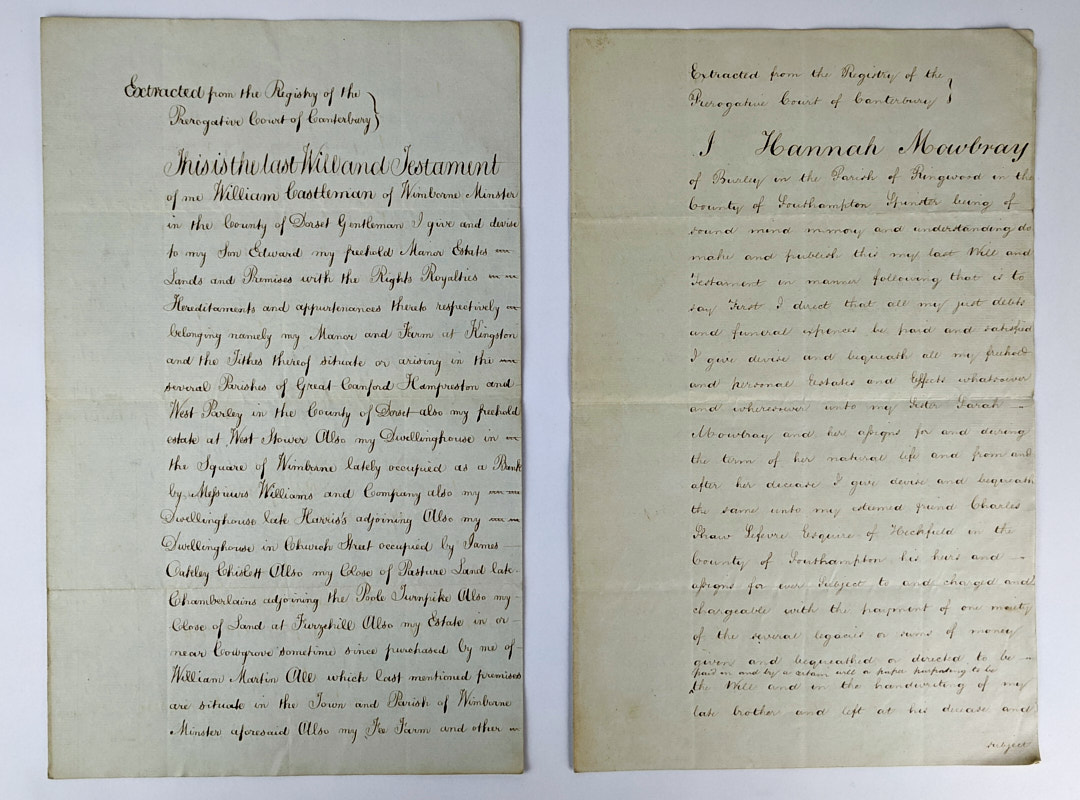 Extracted from the Registry of the
Prerogative Court of Canterbury
This is the last Will and Testament
of me William Castleman of Wimborne Minster
in the County of Dorset Gentleman I give and devise
to my Son Edward my freehold Manor Estates
Lands and Premises with the Rights Royalties
Hereditaments and appurtenances thereto respectively
belonging namely my Manor and Farm at Kingston
and the Tithes thereof situate or arising in the
several Parishes of Great Canford Hampreston and
West Parley in the County of Dorset also my freehold
estate at West Stower Also my Dwellinghouse in
the Square of Wimborne lately occupied as a Bank
by Messieurs Williams and Company also my
Dwellinghouse late Harris's adjoining Also my
Dwellinghouse in Church Street occupied by James
Oakley Chislett Also my Close of Pasture Land late
Chamberlains adjoining the Poole Turnpike Also my
Close of Land at Furzehill Also my Estate in or
near Cowgrove sometime since purchased by me of
William Martin All which last mentioned premises
are situate in the Town and Parish of Wimborne
Minster aforesaid Also my Fee Farm and other
Extracted from the Registry of the
Prerogative Court of Canterbury
I Hannah Mowbray
of Burley in the Parish of Ringwood in the
County of Southampton Spinster being of
sound mind memory and understanding do
make and publish this my last Will and
Testament in manner following that is to
say First I direct that all my just debts
and funeral expences be paid and satisfied
I give devise and bequeath all my freehold
and personal Estates and Effects whatsoever
and wheresoever unto my Sister Sarah
Mowbray and her assigns for and during
the term of her natural life and from and
after her decease I give devise and bequeath
the same unto my esteemed friend Charles
Shaw Lefevre Esquire of Heckfield in the
County of Southampton his heirs and
assigns for ever Subject to and charged and
chargeable with the payment of one moiety
of the several legacies or sums of money
given and bequeathed or directed to be
paid in and by a certain will or paper purporting to be
the Will and in the handwriting of my
late brother and left at his decease and
subject